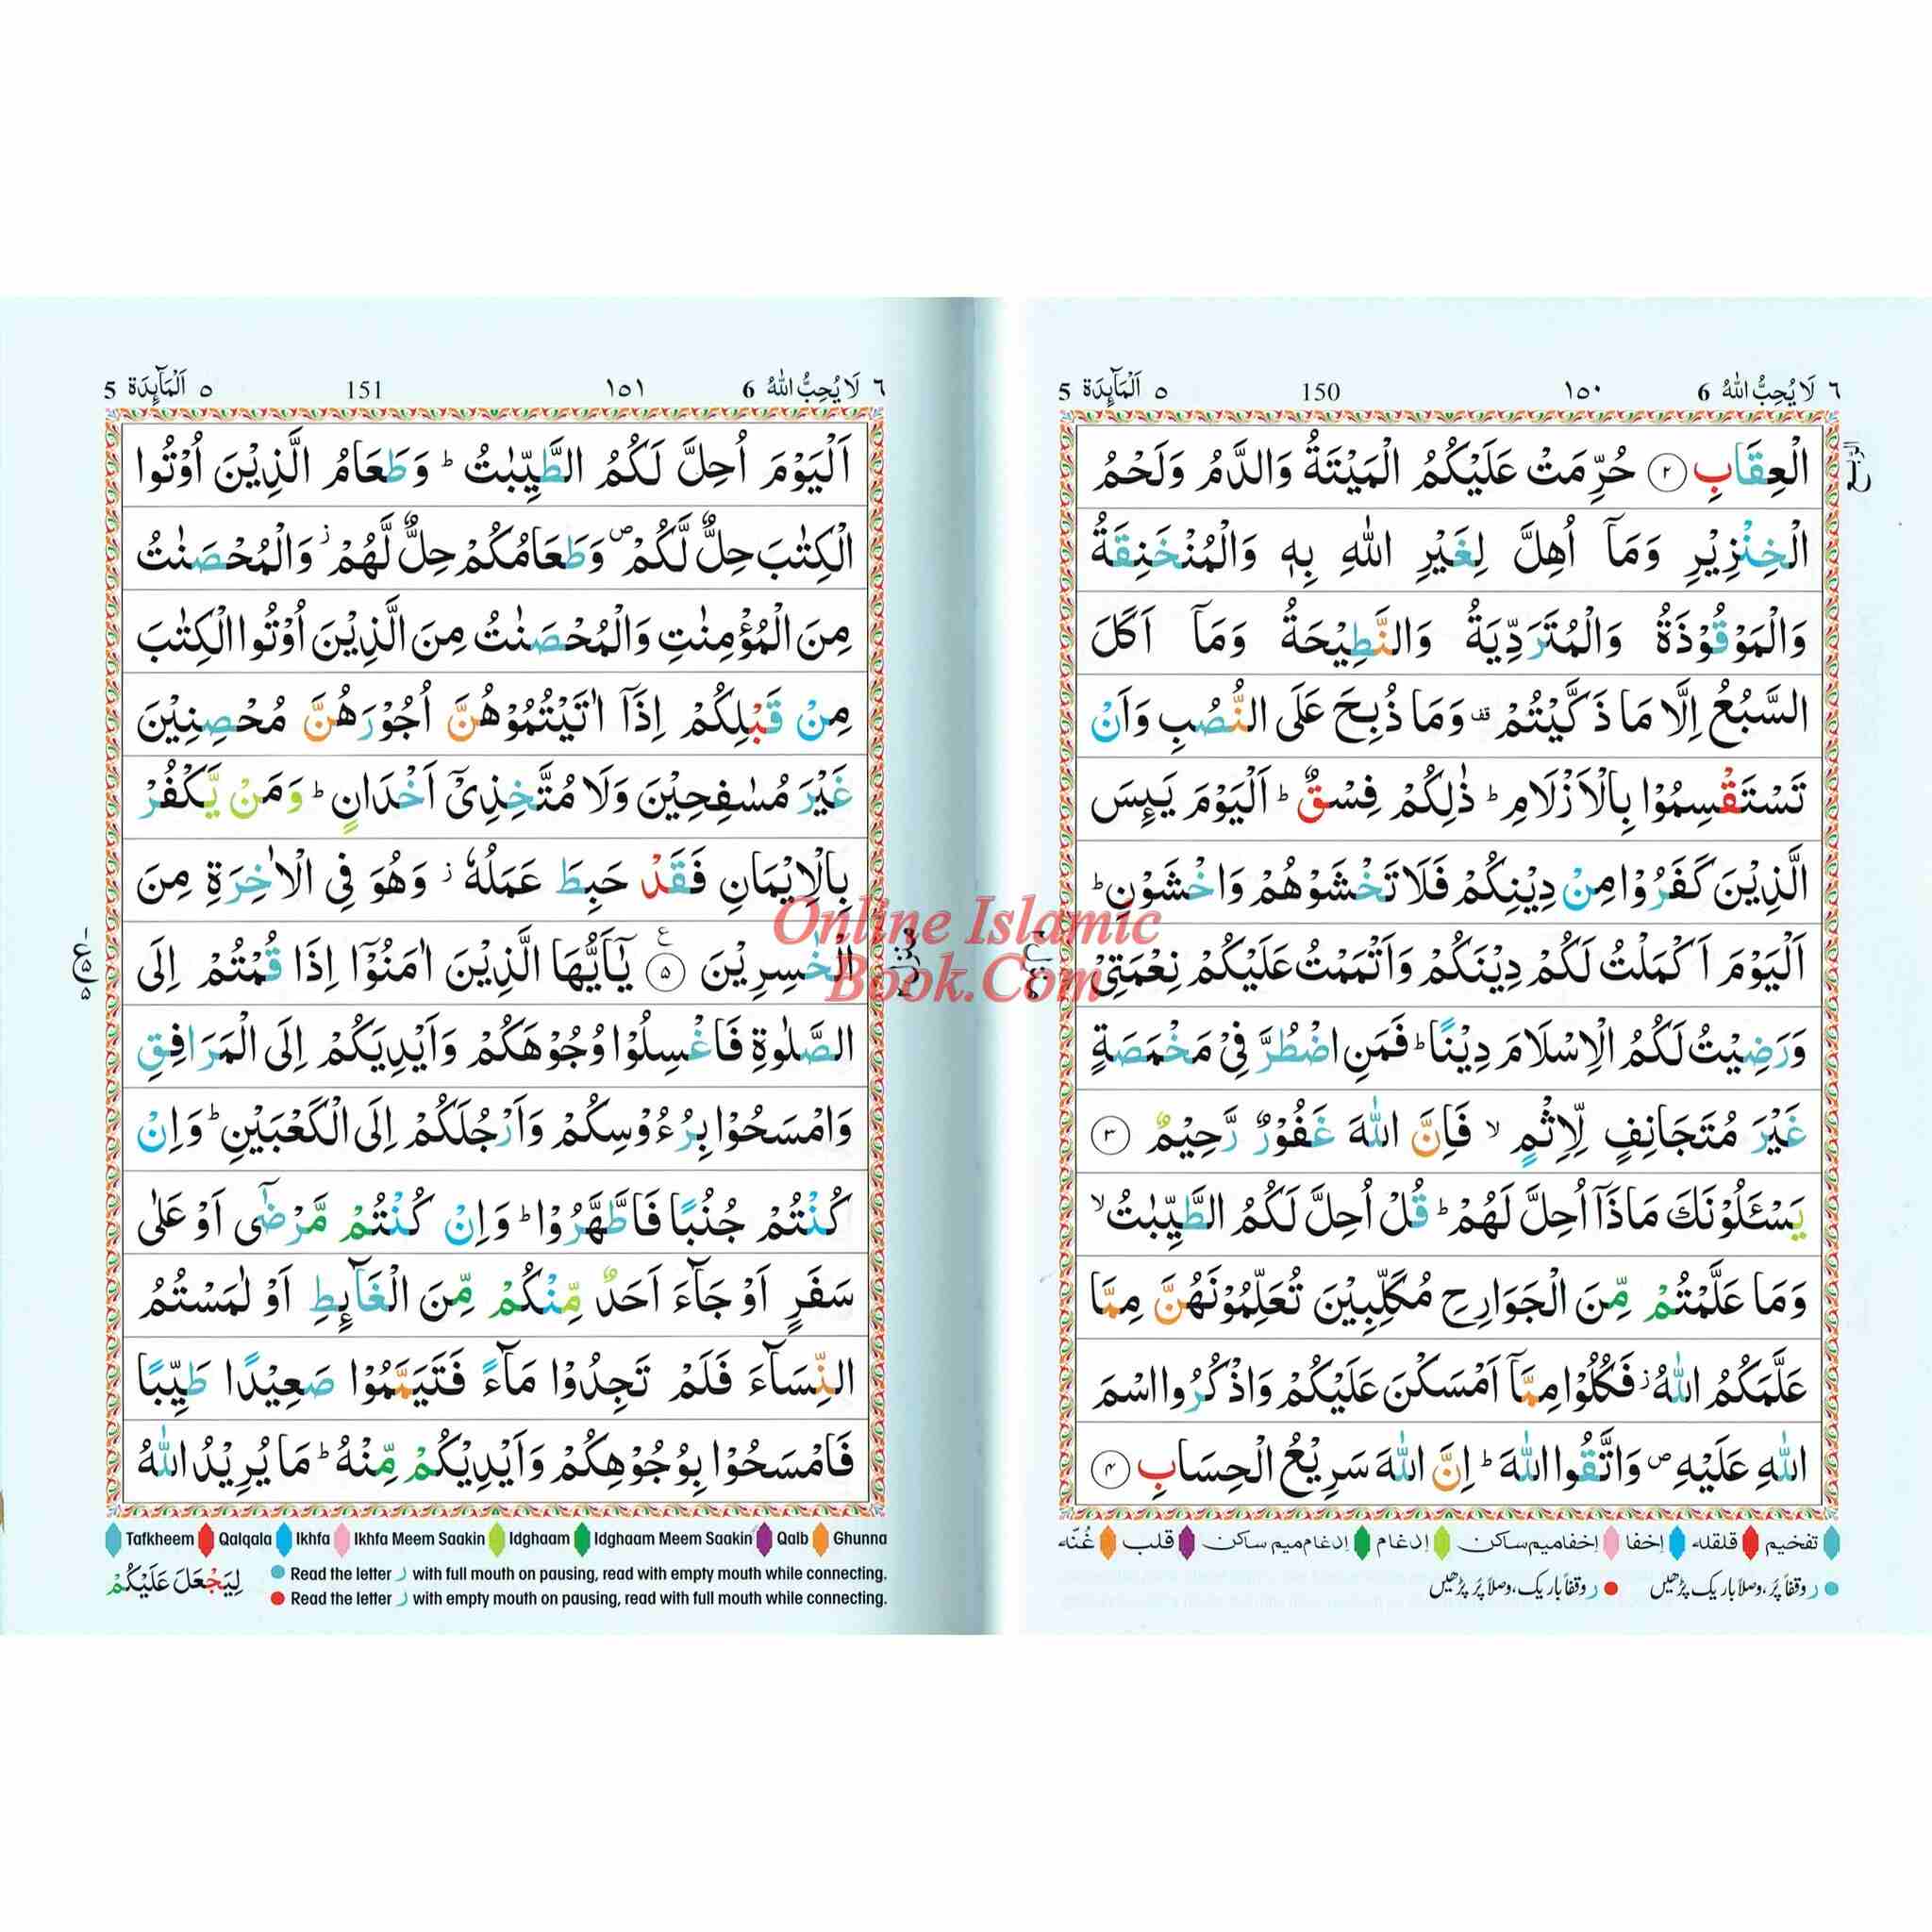 ٦ لَا يُحِبُّ اللّٰهُ 6 ١٥٠ 150 ٥ اَلْمَآئِدَة 5
الْعِقَابِ ۝٢ حُرِّمَتْ عَلَيْكُمُ الْمَيْتَةُ وَالدَّمُ وَلَحْمُ
الْخِنْزِيْرِ وَمَآ اُهِلَّ لِغَيْرِ اللّٰهِ بِهٖ وَالْمُنْخَنِقَةُ
وَالْمَوْقُوْذَةُ وَالْمُتَرَدِّيَةُ وَالنَّطِيْحَةُ وَمَآ اَكَلَ
السَّبُعُ اِلَّا مَا ذَكَّيْتُمْ قف وَمَا ذُبِحَ عَلَى النُّصُبِ وَاَنْ
تَسْتَقْسِمُوْا بِالْاَزْلَامِ ؕ ذٰلِكُمْ فِسْقٌ ؕ اَلْيَوْمَ يَىِٕسَ
الَّذِيْنَ كَفَرُوْا مِنْ دِيْنِكُمْ فَلَا تَخْشَوْهُمْ وَاخْشَوْنِ ؕ
اَلْيَوْمَ اَكْمَلْتُ لَكُمْ دِيْنَكُمْ وَاَتْمَمْتُ عَلَيْكُمْ نِعْمَتِيْ
وَرَضِيْتُ لَكُمُ الْاِسْلَامَ دِيْنًا ؕ فَمَنِ اضْطُرَّ فِيْ مَخْمَصَةٍ
غَيْرَ مُتَجَانِفٍ لِّاِثْمٍ ۙ فَاِنَّ اللّٰهَ غَفُوْرٌ رَّحِيْمٌ ۝٣
يَسْـَٔلُوْنَكَ مَاذَآ اُحِلَّ لَهُمْ ؕ قُلْ اُحِلَّ لَكُمُ الطَّيِّبٰتُ ۙ
وَمَا عَلَّمْتُمْ مِّنَ الْجَوَارِحِ مُكَلِّبِيْنَ تُعَلِّمُوْنَهُنَّ مِمَّا
عَلَّمَكُمُ اللّٰهُ ؗ فَكُلُوْا مِمَّآ اَمْسَكْنَ عَلَيْكُمْ وَاذْكُرُوا اسْمَ
اللّٰهِ عَلَيْهِ ۪ وَاتَّقُوا اللّٰهَ ؕ اِنَّ اللّٰهَ سَرِيْعُ الْحِسَابِ ۝٤
تفخيم قلقله إخفا إخفاميم ساكن إدغام إدغام ميم ساكن قلب غُنّه
ر وقفاً پُر، وصلاً باریک پڑھیں ر وقفاً باریک، وصلاً پُر پڑھیں
٦ لَا يُحِبُّ اللّٰهُ 6 ١٥١ 151 ٥ اَلْمَآئِدَة 5
اَلْيَوْمَ اُحِلَّ لَكُمُ الطَّيِّبٰتُ ؕ وَطَعَامُ الَّذِيْنَ اُوْتُوا
الْكِتٰبَ حِلٌّ لَّكُمْ ۪ وَطَعَامُكُمْ حِلٌّ لَّهُمْ ؗ وَالْمُحْصَنٰتُ
مِنَ الْمُؤْمِنٰتِ وَالْمُحْصَنٰتُ مِنَ الَّذِيْنَ اُوْتُوا الْكِتٰبَ
مِنْ قَبْلِكُمْ اِذَآ اٰتَيْتُمُوْهُنَّ اُجُوْرَهُنَّ مُحْصِنِيْنَ
غَيْرَ مُسٰفِحِيْنَ وَلَا مُتَّخِذِيْٓ اَخْدَانٍ ؕ وَمَنْ يَّكْفُرْ
بِالْاِيْمَانِ فَقَدْ حَبِطَ عَمَلُهٗ ؗ وَهُوَ فِي الْاٰخِرَةِ مِنَ
الْخٰسِرِيْنَ ۝٥ ع يٰٓاَيُّهَا الَّذِيْنَ اٰمَنُوْٓا اِذَا قُمْتُمْ اِلَى
الصَّلٰوةِ فَاغْسِلُوْا وُجُوْهَكُمْ وَاَيْدِيَكُمْ اِلَى الْمَرَافِقِ
وَامْسَحُوْا بِرُءُوْسِكُمْ وَاَرْجُلَكُمْ اِلَى الْكَعْبَيْنِ ؕ وَاِنْ
كُنْتُمْ جُنُبًا فَاطَّهَّرُوْا ؕ وَاِنْ كُنْتُمْ مَّرْضٰٓى اَوْ عَلٰى
سَفَرٍ اَوْ جَآءَ اَحَدٌ مِّنْكُمْ مِّنَ الْغَآىِٕطِ اَوْ لٰمَسْتُمُ
النِّسَآءَ فَلَمْ تَجِدُوْا مَآءً فَتَيَمَّمُوْا صَعِيْدًا طَيِّبًا
فَامْسَحُوْا بِوُجُوْهِكُمْ وَاَيْدِيْكُمْ مِّنْهُ ؕ مَا يُرِيْدُ اللّٰهُ
Tafkheem Qalqala Ikhfa Ikhfa Meem Saakin Idghaam Idghaam Meem Saakin Qalb Ghunna
Read the letter ر with full mouth on pausing, read with empty mouth while connecting.
لِيَجْعَلَ عَلَيْكُمْ
Read the letter ر with empty mouth on pausing, read with full mouth while connecting.
Online Islamic
Book.Com